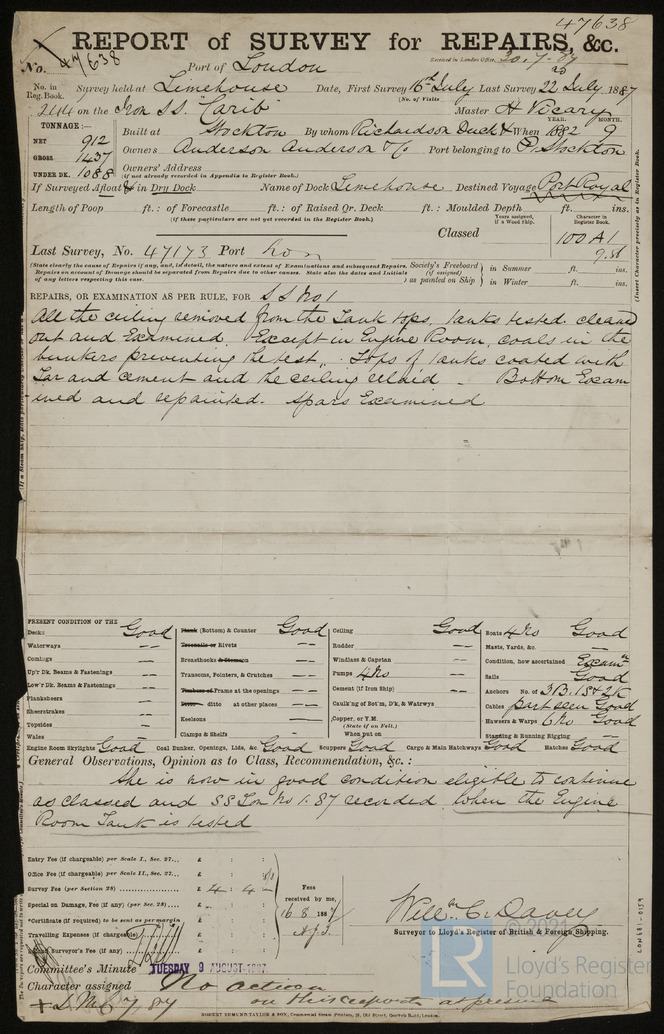 47638
REPORT of SURVEY for REPAIRS, &c.
No. 47638 Port of London Received in London Office,
No. in Reg. Book. Survey held at Limehouse Date, First Survey 16th July Last Survey 22nd July 1887
(No. of Visits
244 on the Iron SS. "Carib" Master H Vicary
TONNAGE:—
NET 912
GROSS 1437
UNDER DK. 1088
Built at Stockton By whom Richardson Duck & When 1882 9
YEAR. MONTH.
Owners Anderson Anderson & Co Port belonging to Stockton
Owners' Address
(if not already recorded in Appendix to Register Book.)
If Surveyed Afloat or in Dry Dock Name of Dock Limehouse Destined Voyage Port Royal
Length of Poop ft.: of Forecastle ft.: of Raised Qr. Deck ft.: Moulded Depth ft. ins.
(If these particulars are not yet recorded in the Register Book.)
Years assigned, if a Wood Ship.
Character in Register Book.
Classed 100 A1
Last Survey, No. 47173 Port Lon
(State clearly the cause of Repairs if any, and, in detail, the nature and extent of Examinations and subsequent Repairs. Repairs on account of Damage should be separated from Repairs due to other causes. State also the dates and Initials of any letters respecting this case.
Society's Freeboard (if assigned) as painted on Ship
in Summer ft. ins.
in Winter ft. ins.
(Insert Character precisely as in Register Book.)
REPAIRS, OR EXAMINATION AS PER RULE, FOR S S No 1
All the ceiling removed from the Tank tops, tanks tested. cleaned
out and Examined. Except in Engine Room, coals in the
bunkers preventing the test. Tops of tanks coated with
Tar and cement and the ceiling relaid – Bottom Exam
ined and repainted. Spars Examined
PRESENT CONDITION OF THE
Decks Good
Waterways
Comings
Up'r Dk. Beams & Fastenings
Low'r Dk. Beams & Fastenings
Planksheers
Sheerstrakes
Topsides
Wales
Plank (Bottom) & Counter Good
Treenails or Rivets
Breasthooks & Stemson
Transoms, Pointers, & Crutches
Timbers of Frame at the openings
ditto at other places
Keelsons
Clamps & Shelfs
Ceiling Good
Rudder
Windlass & Capstan
Pumps 4 No
Cement (if Iron Ship)
Caulk'ng of Bot'm, D'k, & Watrwys
Copper, or Y.M.
(State if on Felt.)
When put on
Boats 4 No Good
Masts, Yards, &c.
Condition, how ascertained Examn
Sails Good
Anchors No. of 3 B. 1 S & 2 K
Cables part seen Good
Hawsers & Warps 6 No Good
Standing & Running Rigging
Engine Room Skylights Good Coal Bunker, Openings, Lids, &c. Good Scuppers Good Cargo & Main Hatchways Good Hatches Good
General Observations, Opinion as to Class, Recommendation, &c.:
She is now in good condition eligible to continue
as classed and SS Lon No 1. 87 recorded when the Engine
Room Tank is tested
Entry Fee (if chargeable) per Scale I., Sec. 27... £ : :
Office Fee (if chargeable) per Scale II., Sec. 27... £ : :
Survey Fee (per Section 28) £ 4 : 4 :
Special on Damage, Fee (if any) (per Sec. 28) £ : :
*Certificate (if required) to be sent as per margin
Travelling Expenses (if chargeable) £ : :
Surveyor's Fee (if any) £ : :
Fees received by me,
16 8 1887
Willm C. Davey
Surveyor to Lloyd's Register of British & Foreign Shipping.
LON 681-0159
Committee's Minute TUESDAY 9 AUGUST 1887
Character assigned No action
on this report at present
ROBERT EDMUND TAYLOR & SON, Commercial Steam Printers, 19, Old Street, Goswell Road, London.
© 2021
LR
Lloyd's Register
Foundation